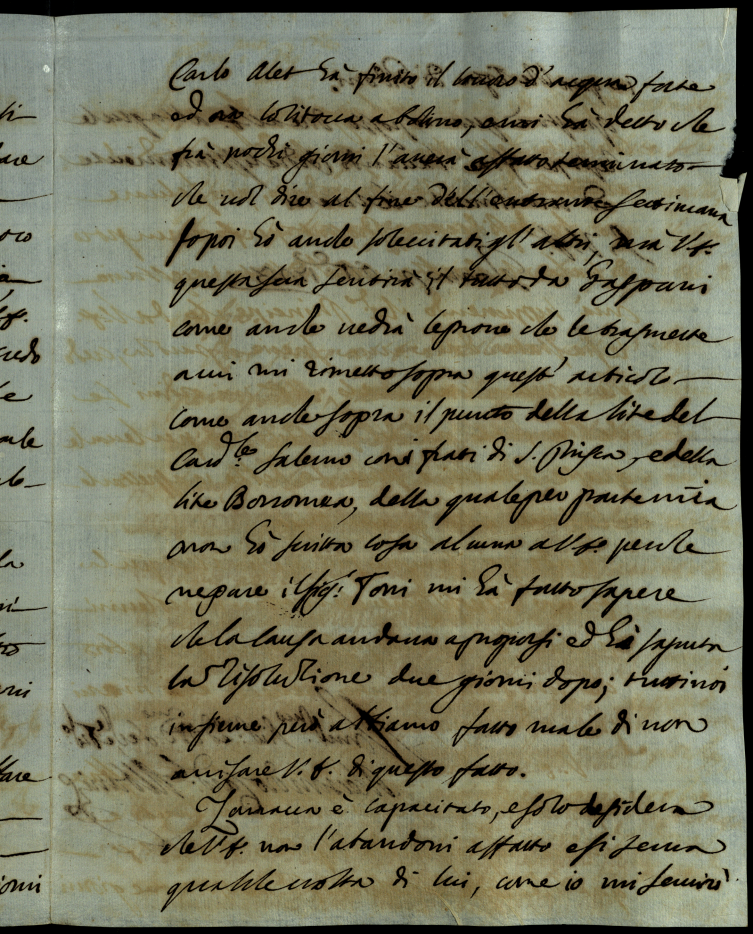 Carlo Alet hà finito il lauoro d'acqua forte
ed ora lo ritocca a bolino, e mi hà detto che
frà pochi giorni l'auerà affatto terminato
che uol dire al fine dell'entrante settimana
Io poi hò anche sollecitati gl'altri, mà V.E.
questa sera sentirà il tutto da Gaspari
come anche uedrà le proue che le trasmette
a cui mi rimetto sopra quest'articolo
come anche sopra il punto della lite del
Card.le Salerno con i frati di S. Prisca, e della
lite Borromea, della quale per parte mia
non hò scritta cosa alcuna a V.E. perche
neppure il Sig.r Toni mi hà fatto sapere
che la causa andaua a proporsi ed hà saputa
la risoluzione due giorni dopo; tutti noi
insieme però abbiamo fatto male di non
auisare V.E. di questo fatto.
è capacitato, e solo desidera
che V.E. non l'abandoni affatto e si serua
qualche uolta di lui, come io mi seruirò
ti-
are
oco
V.E.
redo
la
ni
are
iorni